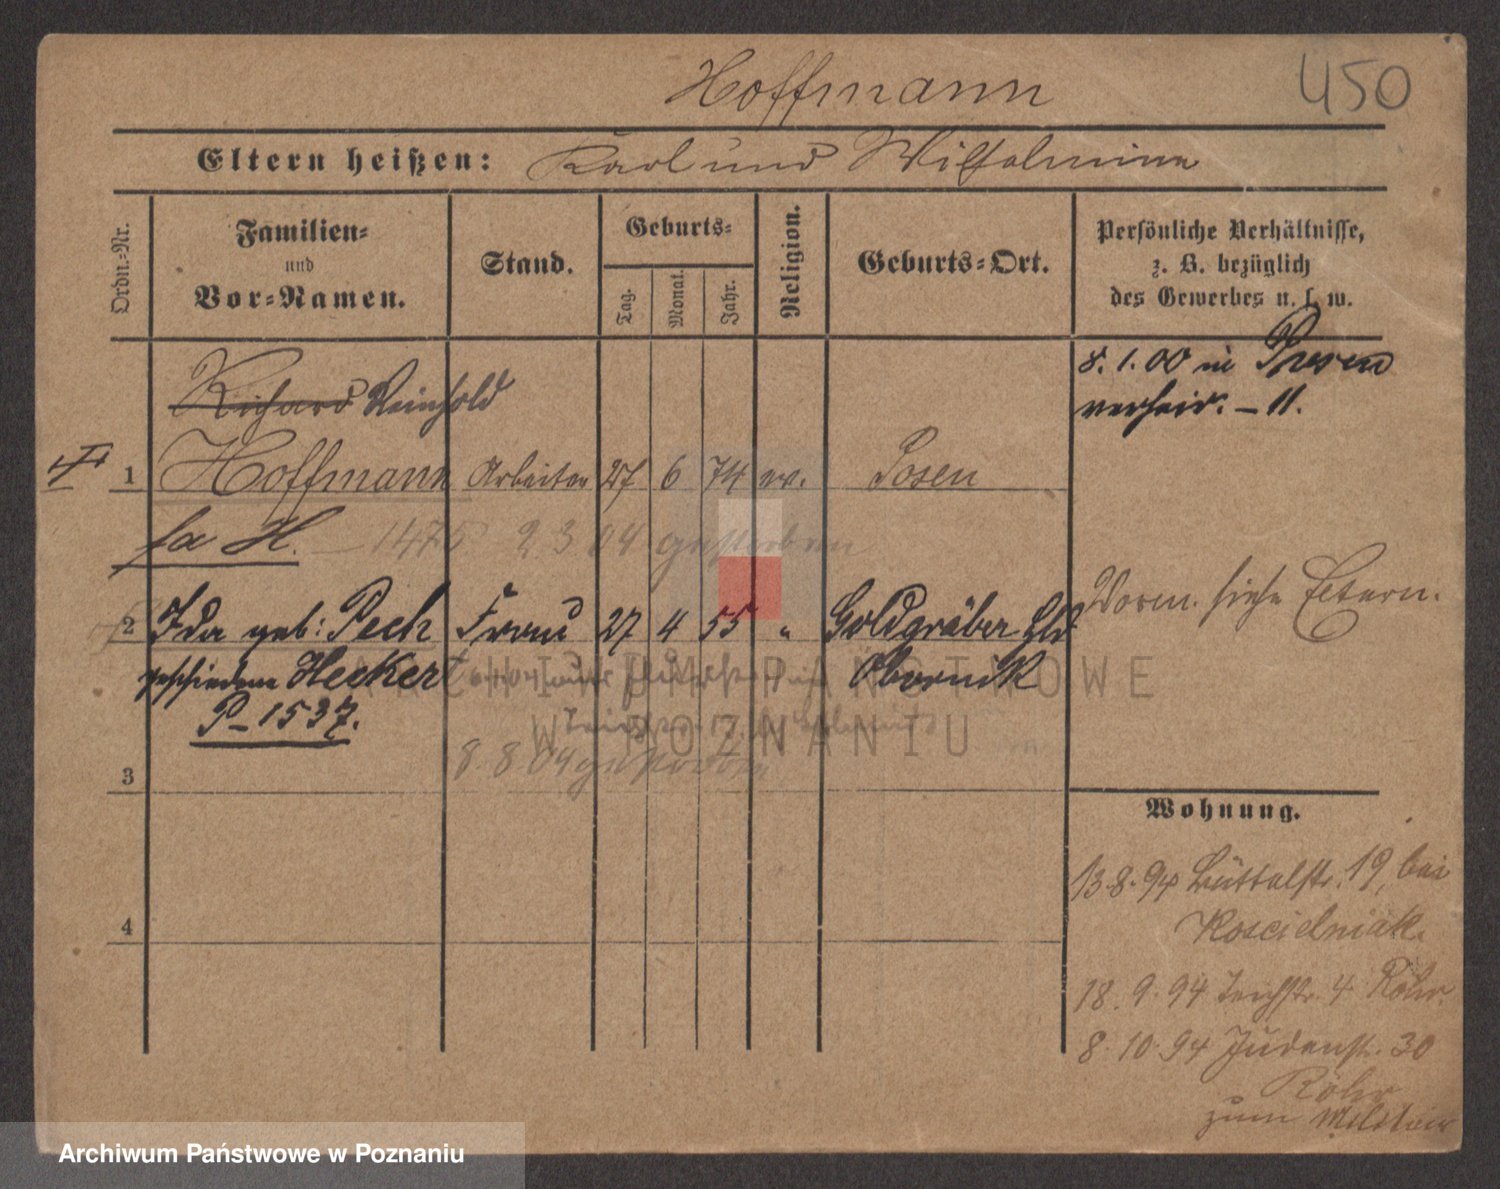 Hoffmann 450
Eltern heißen: Karl und Wilhelmine
Ordn.-Nr.
Familien-
und
Vor-Namen.
Stand.
Geburts-
Tag.
Monat.
Jahr.
Religion.
Geburts-Ort.
Persönliche Verhältnisse,
z. B. bezüglich
des Gewerbes u. s. w.
8. 1. 00 in Posen
verheir. - 11.
Richard Reinhold
1 Hoffmann Arbeiter 27 6 74 ev. Posen
fa H. - 1475 2 3 04 gestorben
2 Ida geb: Pech Frau 27 4 55 " Goldgräber Hld
geschiedene Hecker Obornik
P - 1537.
8. 8 04 gestorben
Vorm. siehe Eltern.
3
4
Wohnung.
13. 8. 94 Büttelstr. 19, bei
Koscielniak.
18. 9. 94 Teichstr. 4 Röhr.
8. 10. 94 Judenstr. 30
Röhr
zum Militair
ARCHIWUM PAŃSTWOWE
W POZNANIU
Archiwum Państwowe w Poznaniu